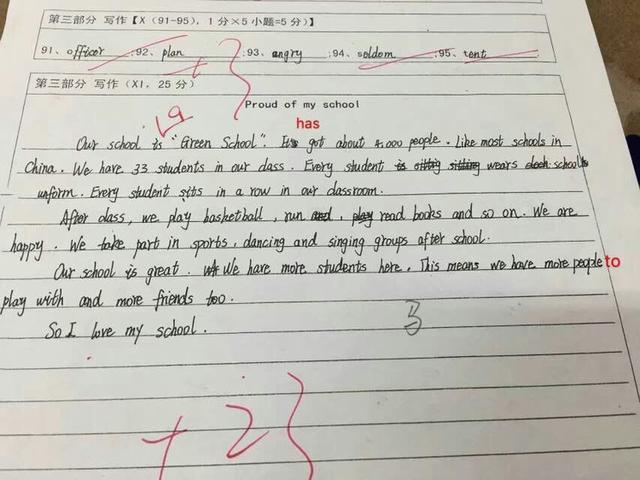 第三部分 写作【X (91-95), 1 分×5 小题=5 分)】
91. officer ;92. plan ;93. angry 94. seldom ;95. tent
第三部分 写作 (XI, 25 分)
Proud of my school
19
has
Our school is "Green School". It's got about 4,000 people. Like most schools in
China. We have 33 students in our class. Every student wears school
unform. Every student sits in a row in our classroom.
After class, we play basketball, run, read books and so on. We are
happy. We take part in sports, dancing and singing groups after school.
Our school is great. We have more students here. This means we have more people to
play with and more friends too.
So I love my school.
3
+2